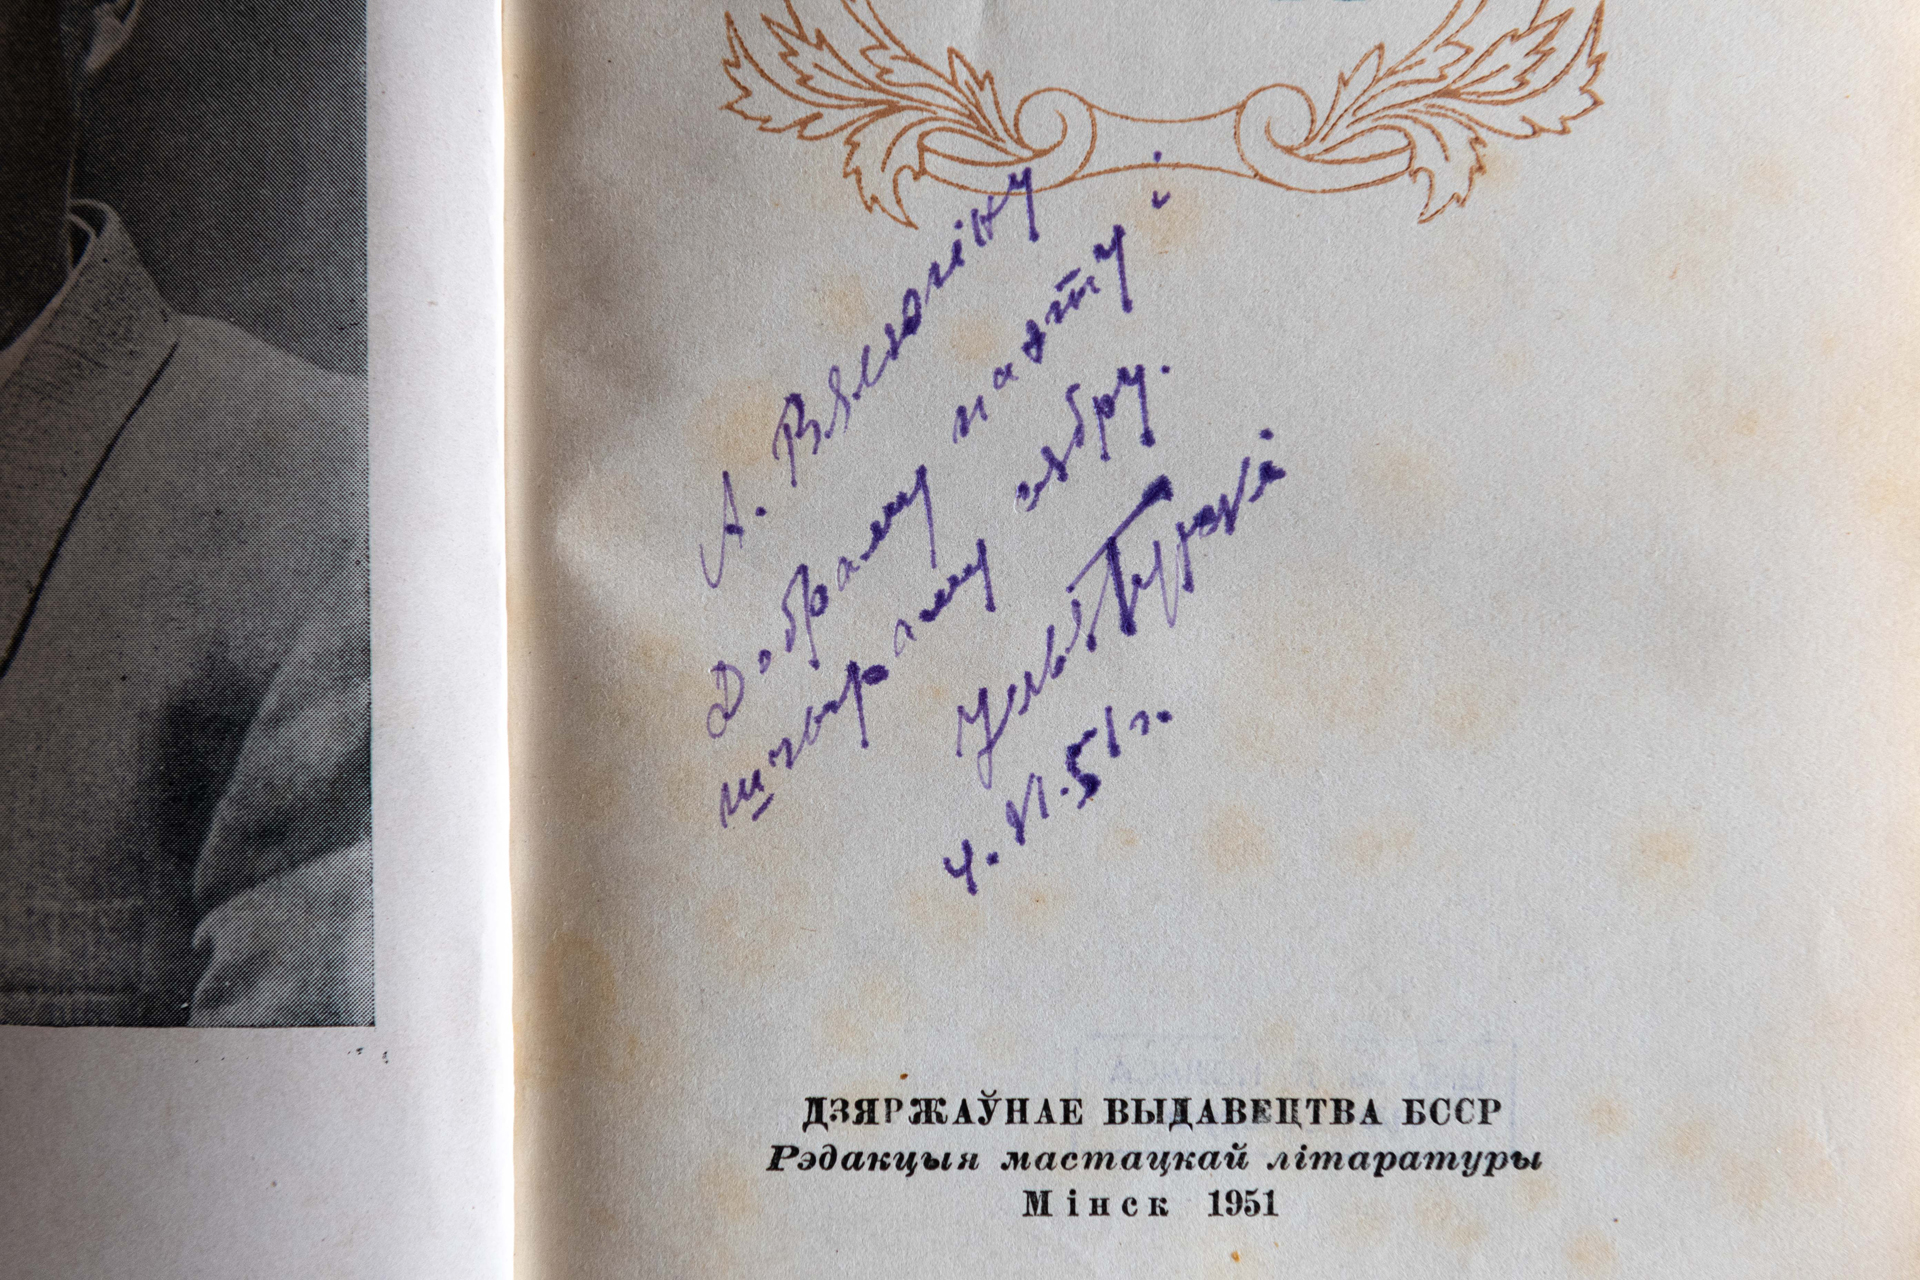 А. Вялюгіну
Добраму паэту і
шчыраму сябру.
4. VI. 51 г.
ДЗЯРЖАЎНАЕ ВЫДАВЕЦТВА БССР
Рэдакцыя мастацкай літаратуры
Мінск 1951